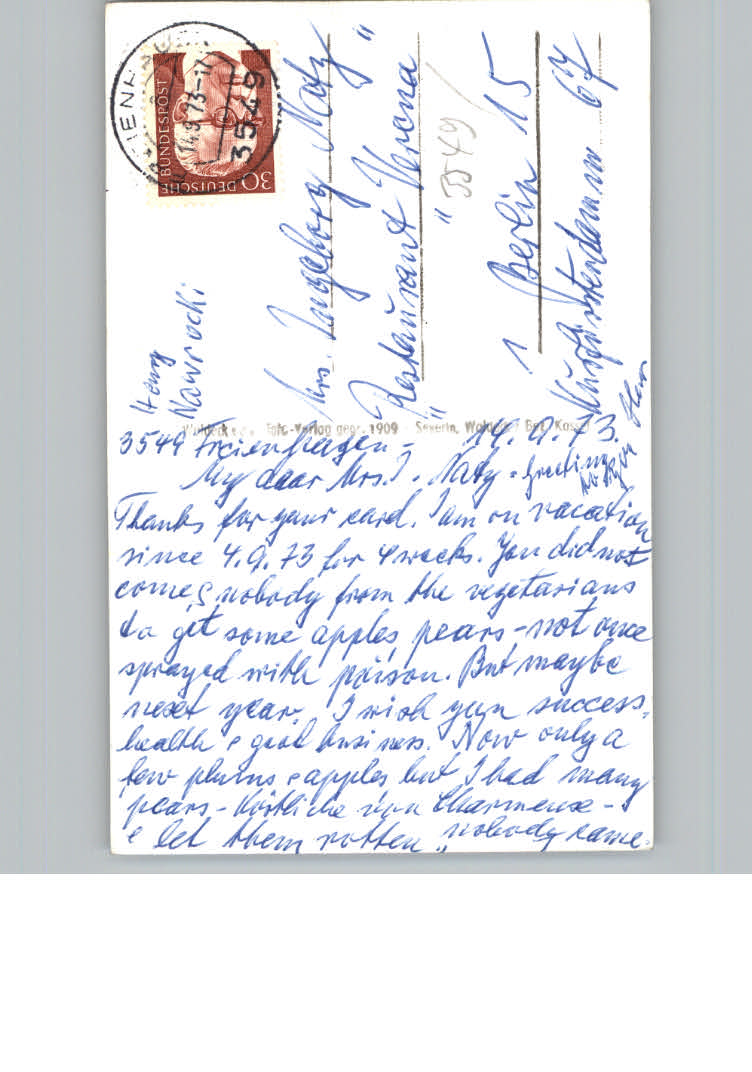 DEUTSCHE BUNDESPOST
30
14.9.73-17
3549
Mrs. Ingeborg Natz
"Restaurant Verena"
3549
1 Berlin 15
Kurfürstendamm 67
Nawrocki
Waldeck Foto-Verlag gegr. 1909 Severin, Bez. Kassel
3549 Freienhagen - 14.9.73.
My dear Mrs. I. Natz - greetings
Thanks for your card. I am on vacation
since 4.9.73 for 4 weeks. You did not
come & nobody from the vegetarians
to get some apples, pears - not once
sprayed with poison. But maybe
next year. I wish you success,
health & good business. Now only a
few plums & apples but I had many
pears - Köstliche von Charneux -
& let them rotten, nobody came.